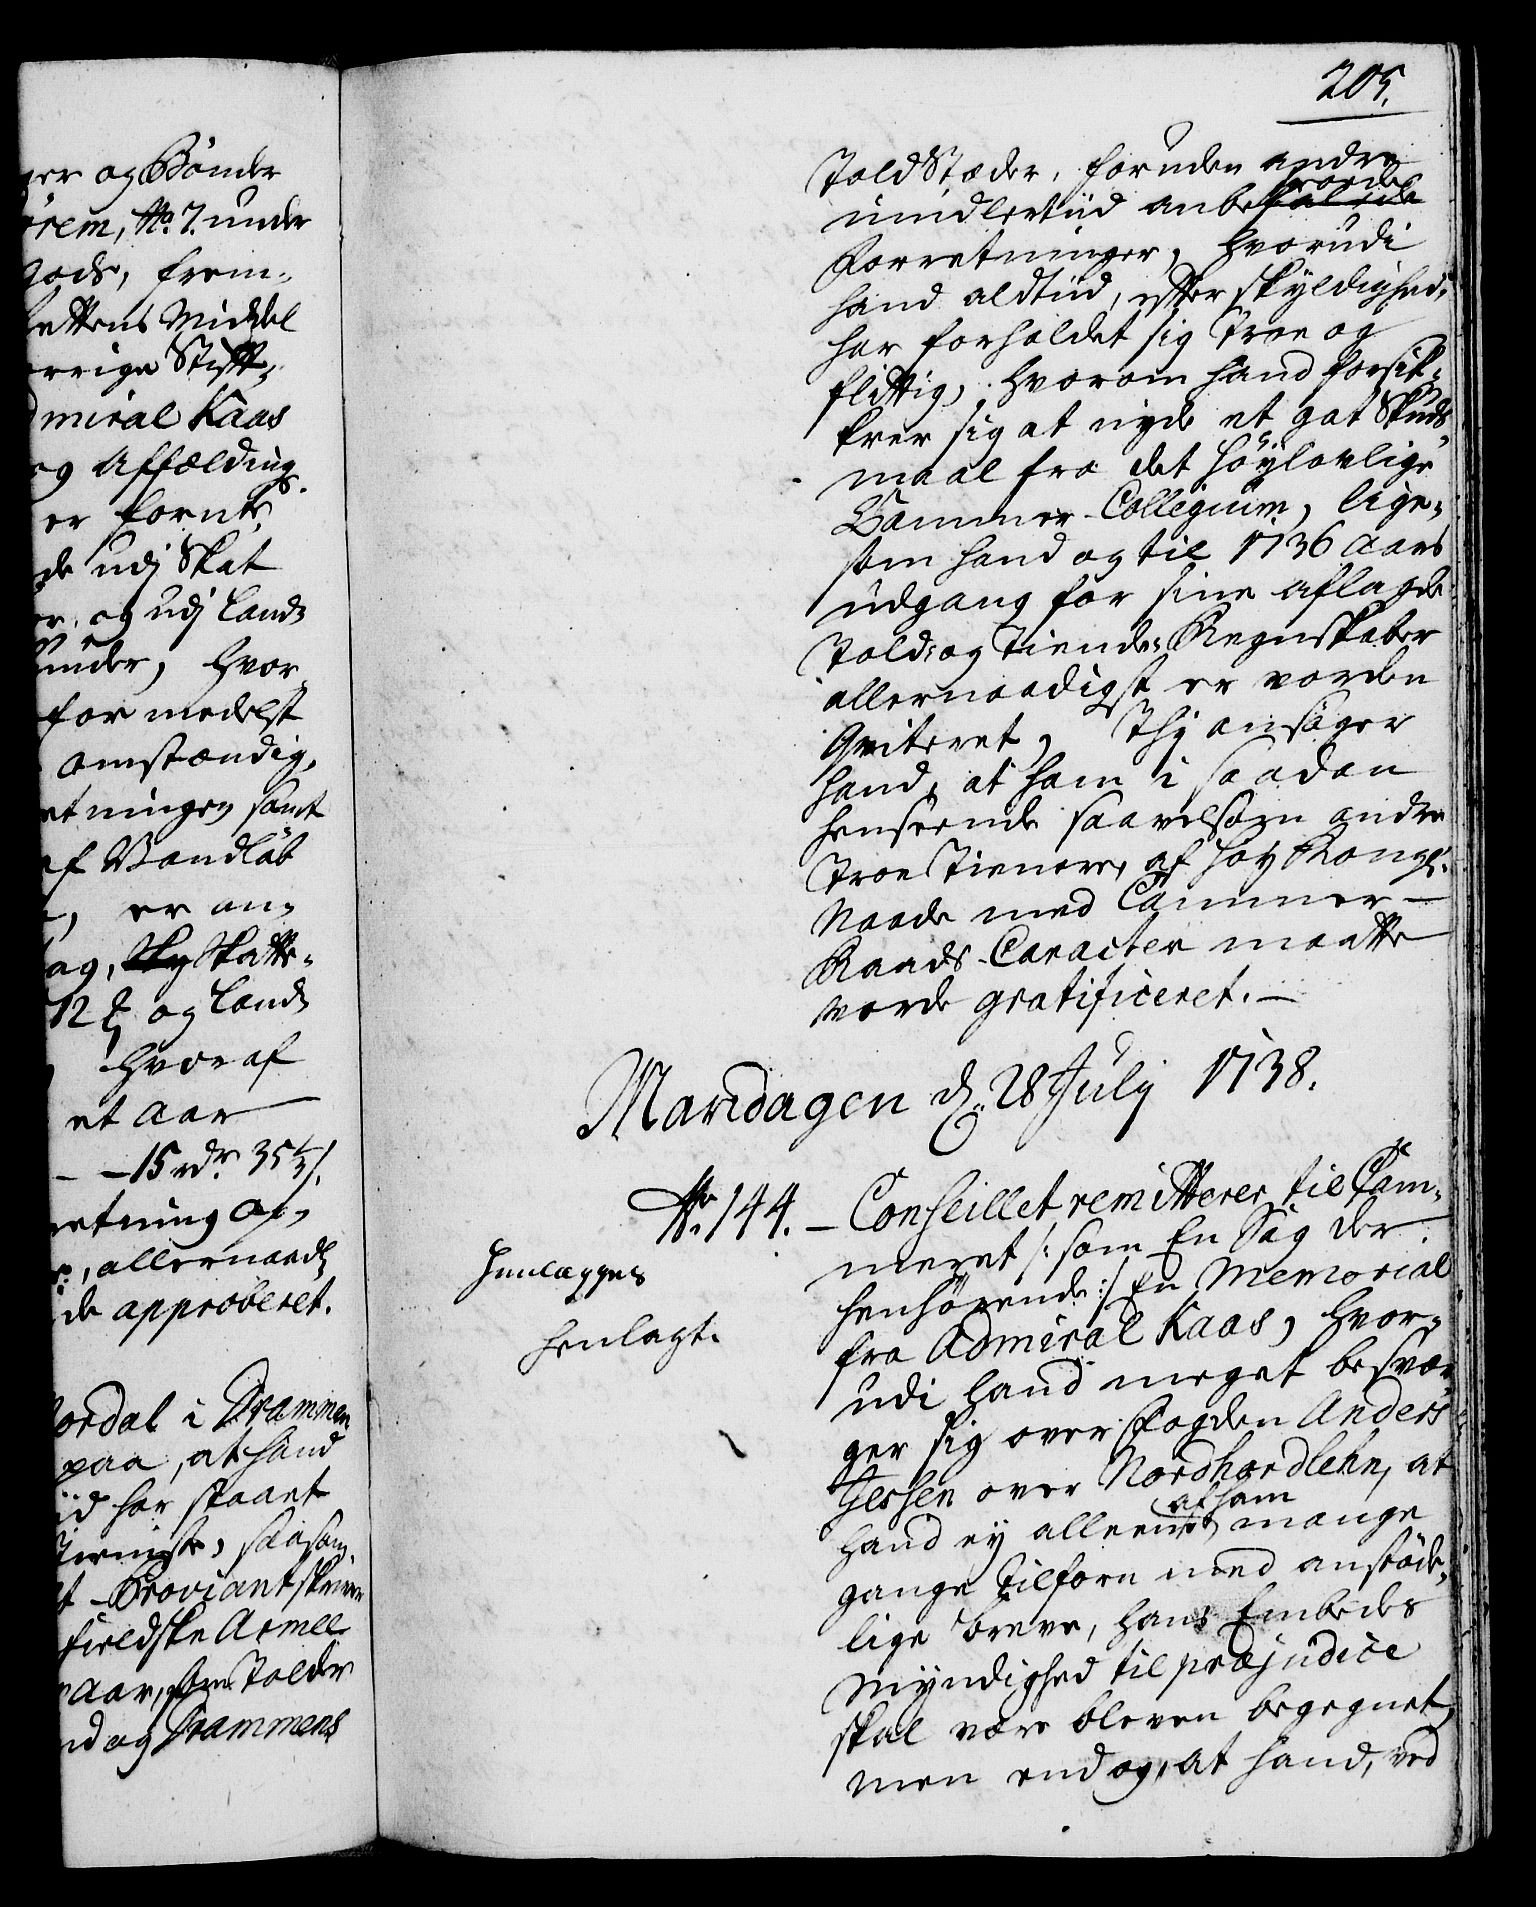 ger og Bönder
örem, No. 7. under
gods, frem-
rettens Middel
orrige Stift-
dmiral Kaas
og Affælding
er fornte
de udj Skat
er, og udj Land-
under, hvor-
for medelst
omstændig,
etningen samt
af Vandløb
er an-
ag, Skatte-
12 ß og Land-
hvoraf
et Aar
- -15 rdr. 35 1/3 ß.
retning ap-
allernaad
de approberet.
Nordal i Drammen
paa, at hand
tiid har staaet
Tieniste, saasom
t Proviantskriver
fieldske Armee
Aar, som Tolder
nd og Drammens
205.
Told Stæder, foruden andre
imidlertiid anbefalede vorde
Forretninger, hvorudi
hand altiid, efter skyldighed,
har forholdet sig troe og
flittig, hvorom hand forsik-
krer sig at nyde et got Skuds-
maal fra det höylovlige
Cammer-Collegium, lige-
som hand og til 1736 Aars
udgang for sine aflagde
Told- og Tiende-Regnskaber
allernaadigst er vorden
Qviteret, Thj ansöger
hand, at ham i saadan
henseende saavelsom andre
troe Tienere, af höy Kongl:
Naade med Cammer-
Raads-Caracter maatte
vorde gratificeret.-
Mandagen d. 28 July 1738.
No. 144. - Conseillet remitterer til Cam-
meret /: som En Sag der
henhörende :/ En Memorial
fra Admiral Kaas, hvor-
udi hand meget besvær-
ger sig over Fogden Anders
Jessen over Nordhordlehn, at
hand ey alleene af ham mange
gange tilforn med anstöde-
lige breve, hans Embedes
Myndighed til præjudice
skal være bleven begegnet,
men end og, at hand, ved
Henlægges
henlagt.